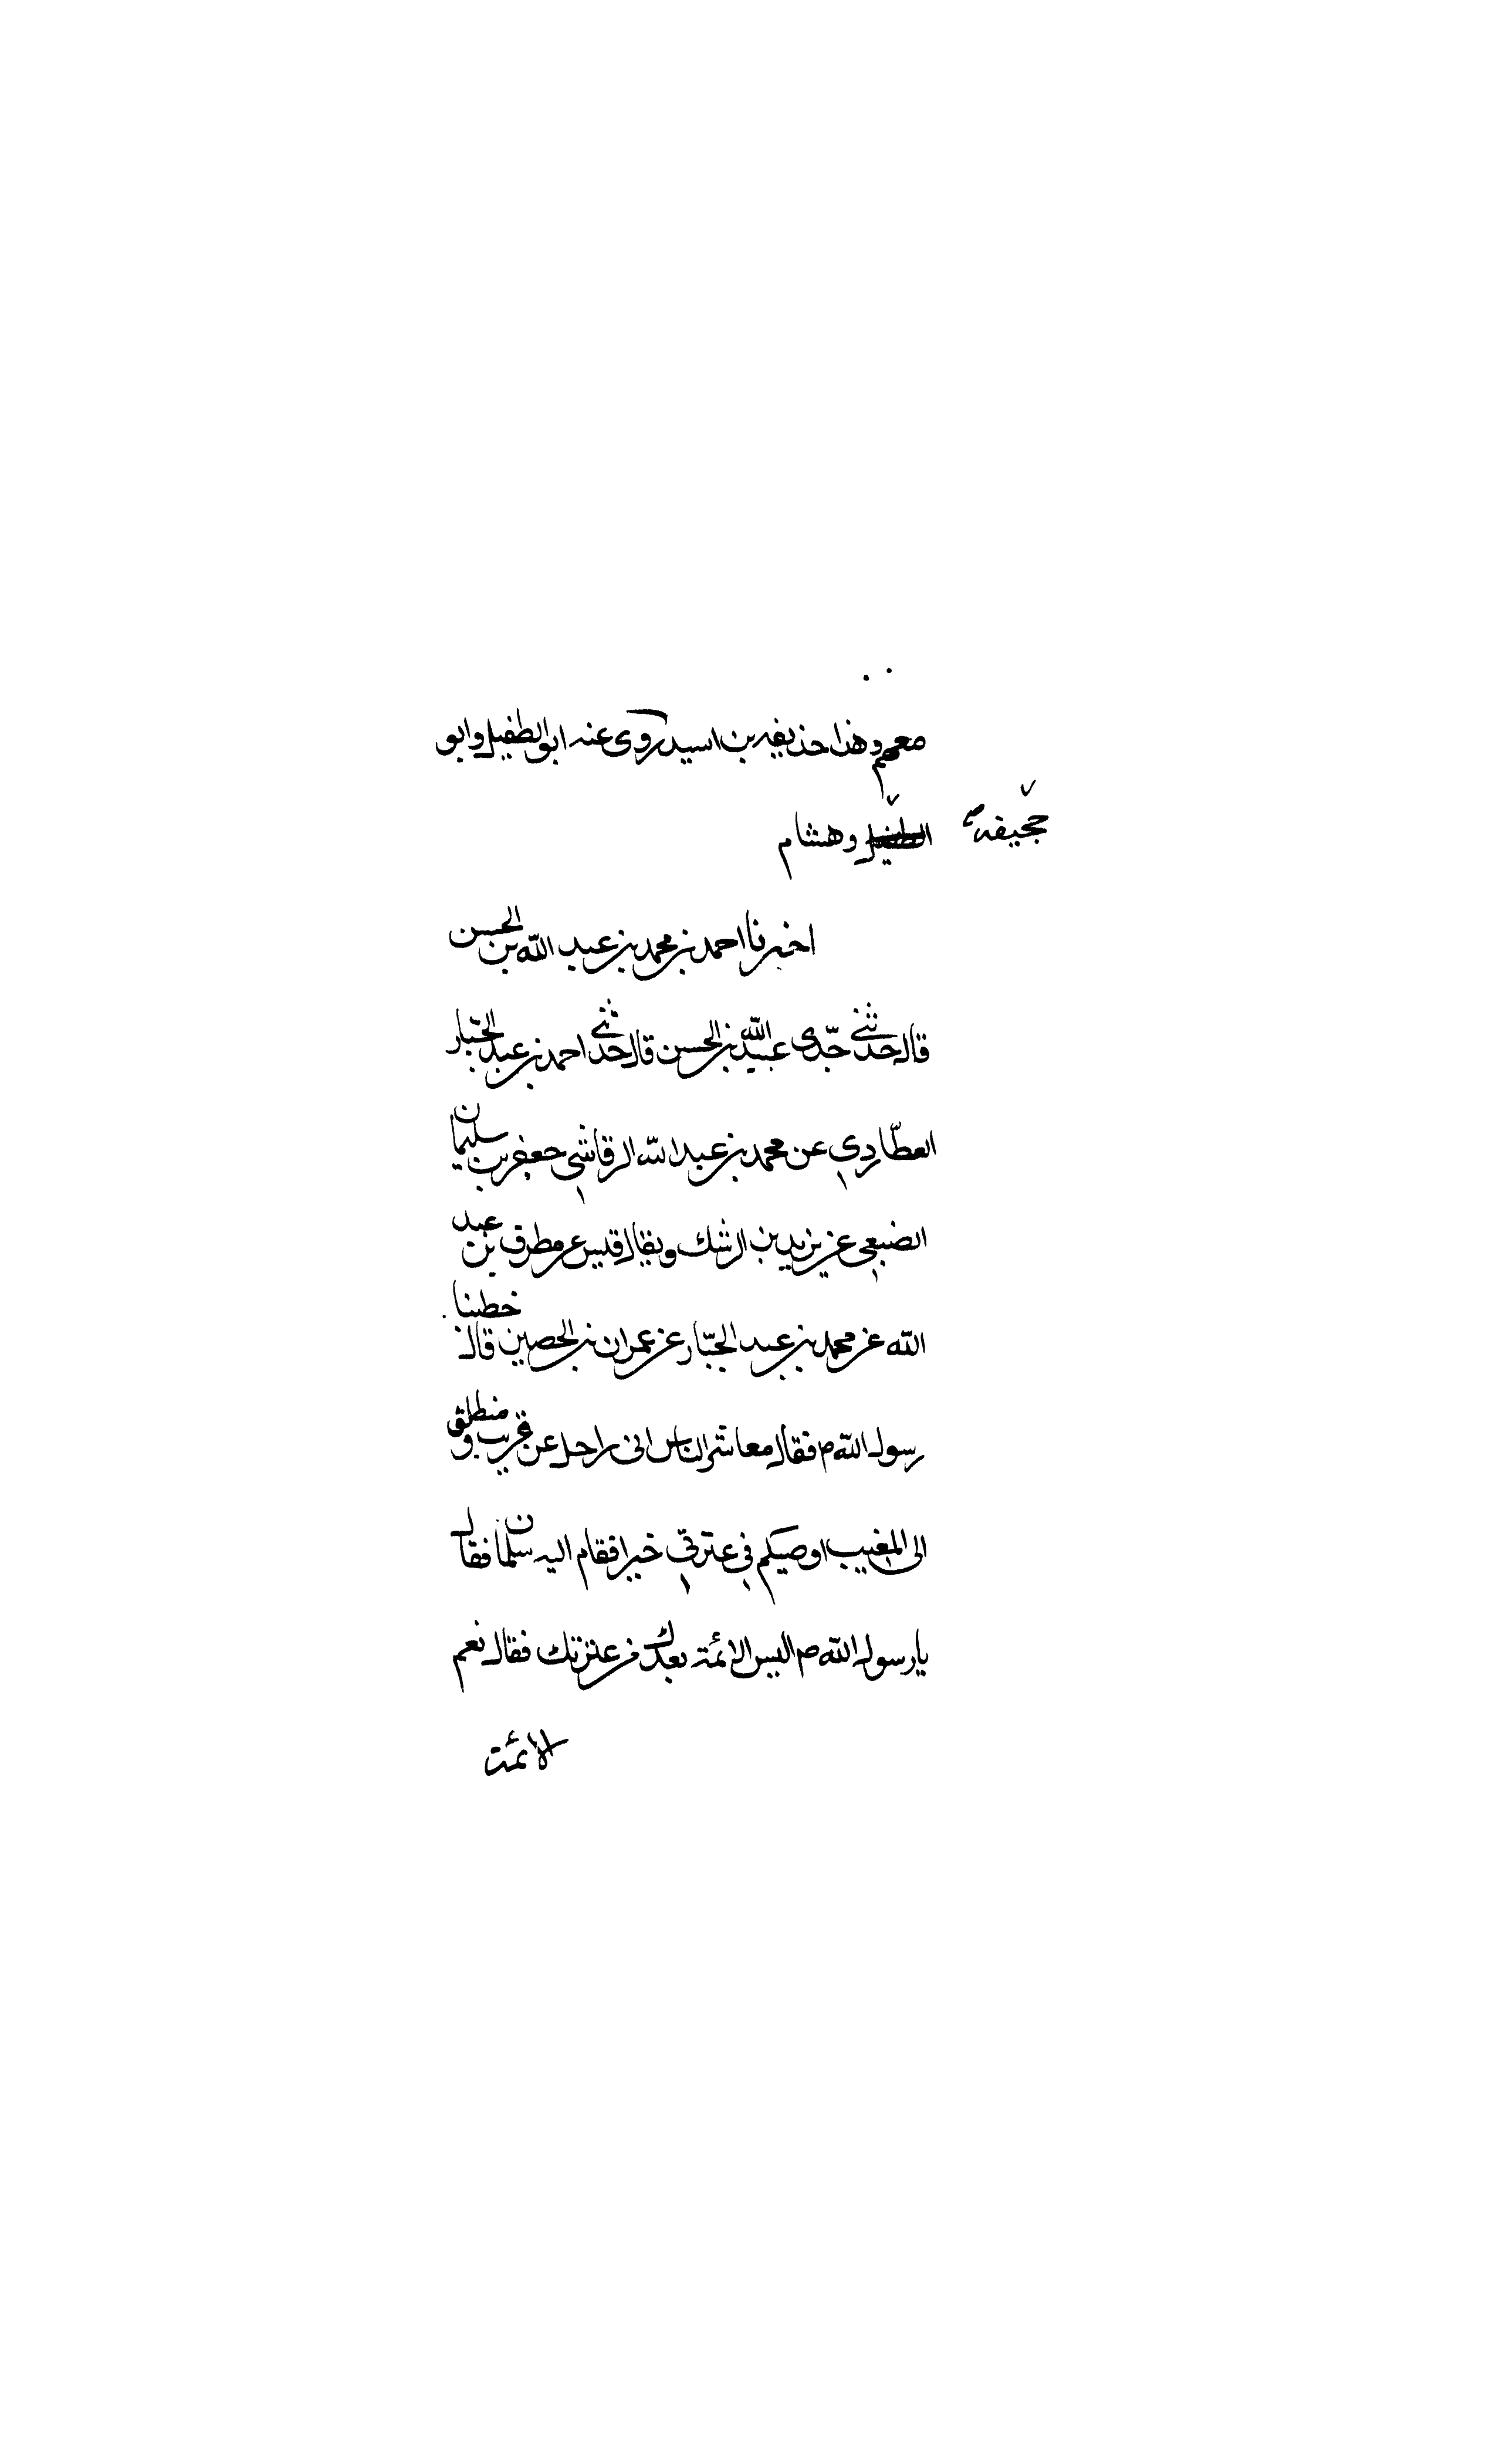 معهم وهذا حذيفه بن اسيد روى عنه ابو الطفيل وابو
جحيفه صح
الطفيل وهشام
اخبرنا احمد بن محمد بن عبيد الله بن الحسن
قال حدثني جدّي عبيد الله بن الحسن قال حدثني احمد بن عبد الجبّار
العطّاردي عن محمد بن عبد الله الرقاشي جعفر بن سليمان
الضبعي عن يزيد بن الرشك ويقال قيس عن مطرف بن عبد
الله عن محمد بن عبد الجبّار عن عمران بن الحصين قال خطبنا
رسول الله ص فقال معاشر الناس اني راحل عن قريب ومنطلق
الى المغيب اوصيكم في عترتي خيرا فقام اليه سلمان فقال
يا رسول الله ص اليس الائمة بعدك من عترتك فقال نعم
الائمة